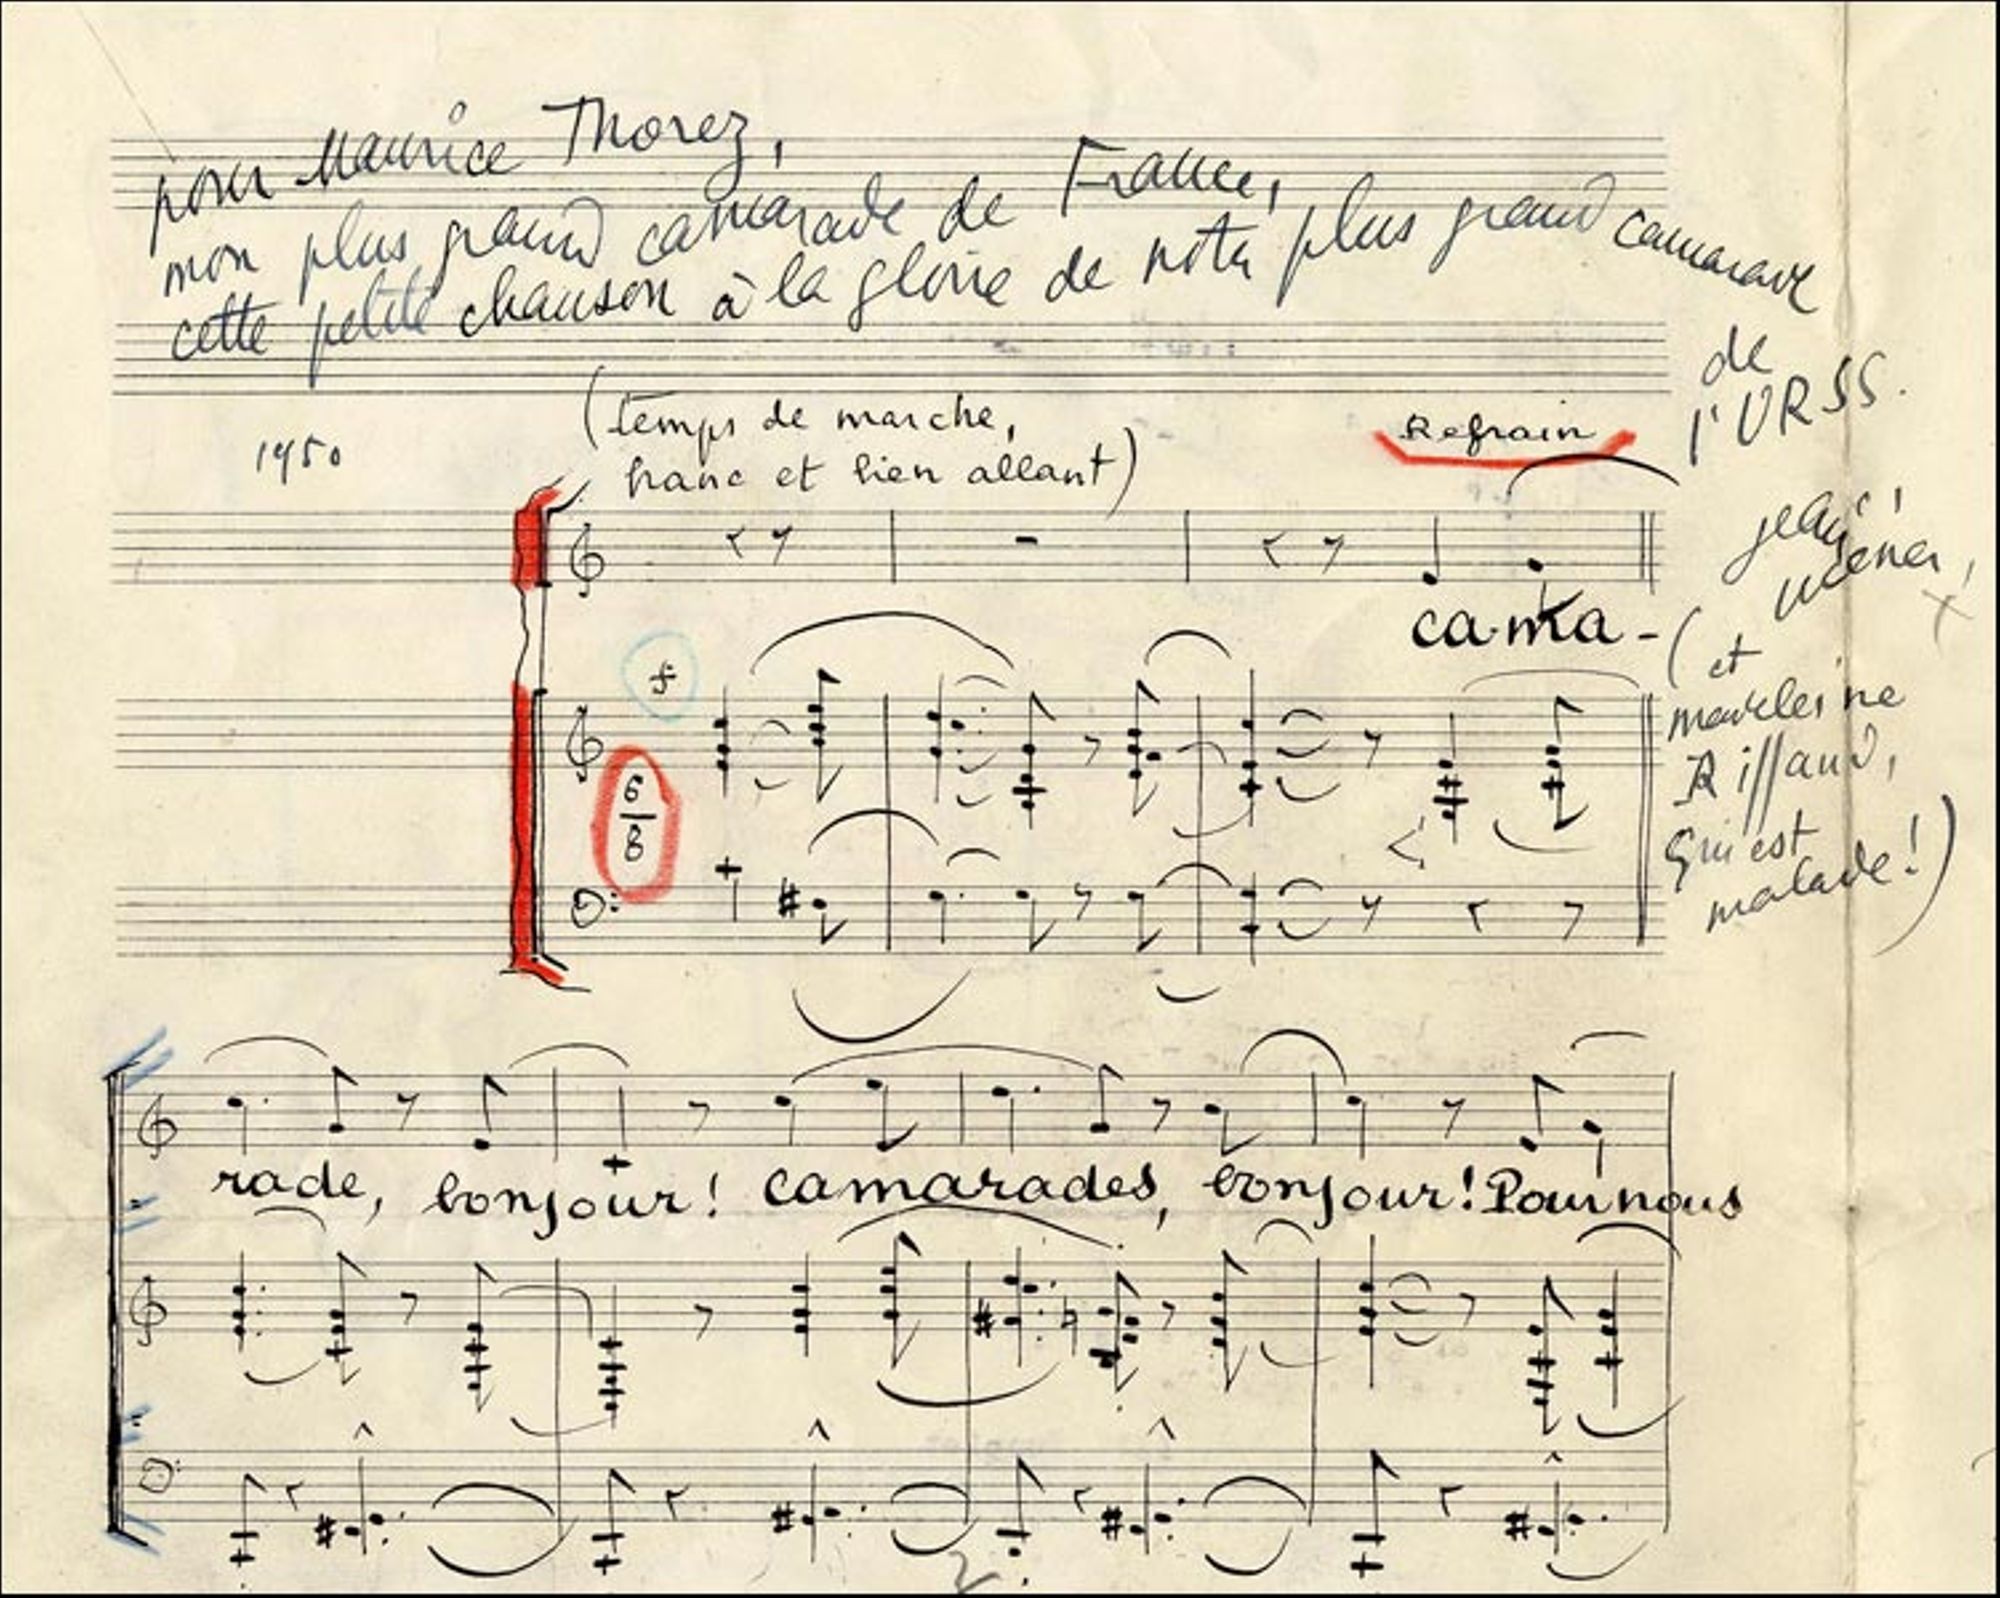 pour Maurice Thorez,
mon plus grand camarade de France,
cette petite chanson à la gloire de notre plus grand camarade
de
l'URSS.
1950
(temps de marche,
franc et bien allant)
Refrain
jean
wiéner,
(et
madeleine
Riffaud,
qui est
malade!)
ca-ma-
f
6
8
rade, bonjour! camarades, bonjour! Pour nous